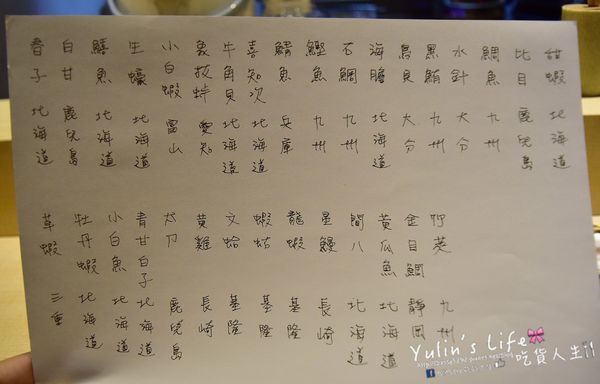 甜蝦 北海道
比目 鹿兒島
鯛魚 九州
水針 大分
黑鮪 九州
鳥貝 大分
海膽 北海道
石鯛 九州
鰹魚 九州
鯖魚 兵庫
喜知次 北海道
牛角貝 北海道
象拔蚌 愛知
小白蝦 富山
生蠔 北海道
鱈魚 北海道
白甘 鹿兒島
春子 北海道
竹莢 九州
金目鯛 靜岡
黃瓜魚 北海道
間八 北海道
星鰻 長崎
龍蝦 基隆
蝦蛄 基隆
文蛤 基隆
黃雞 長崎
太刀 鹿兒島
青甘白子 北海道
小白魚 北海道
牡丹蝦 北海道
草蝦 三重
Yulin's Life
吃貨人生!!